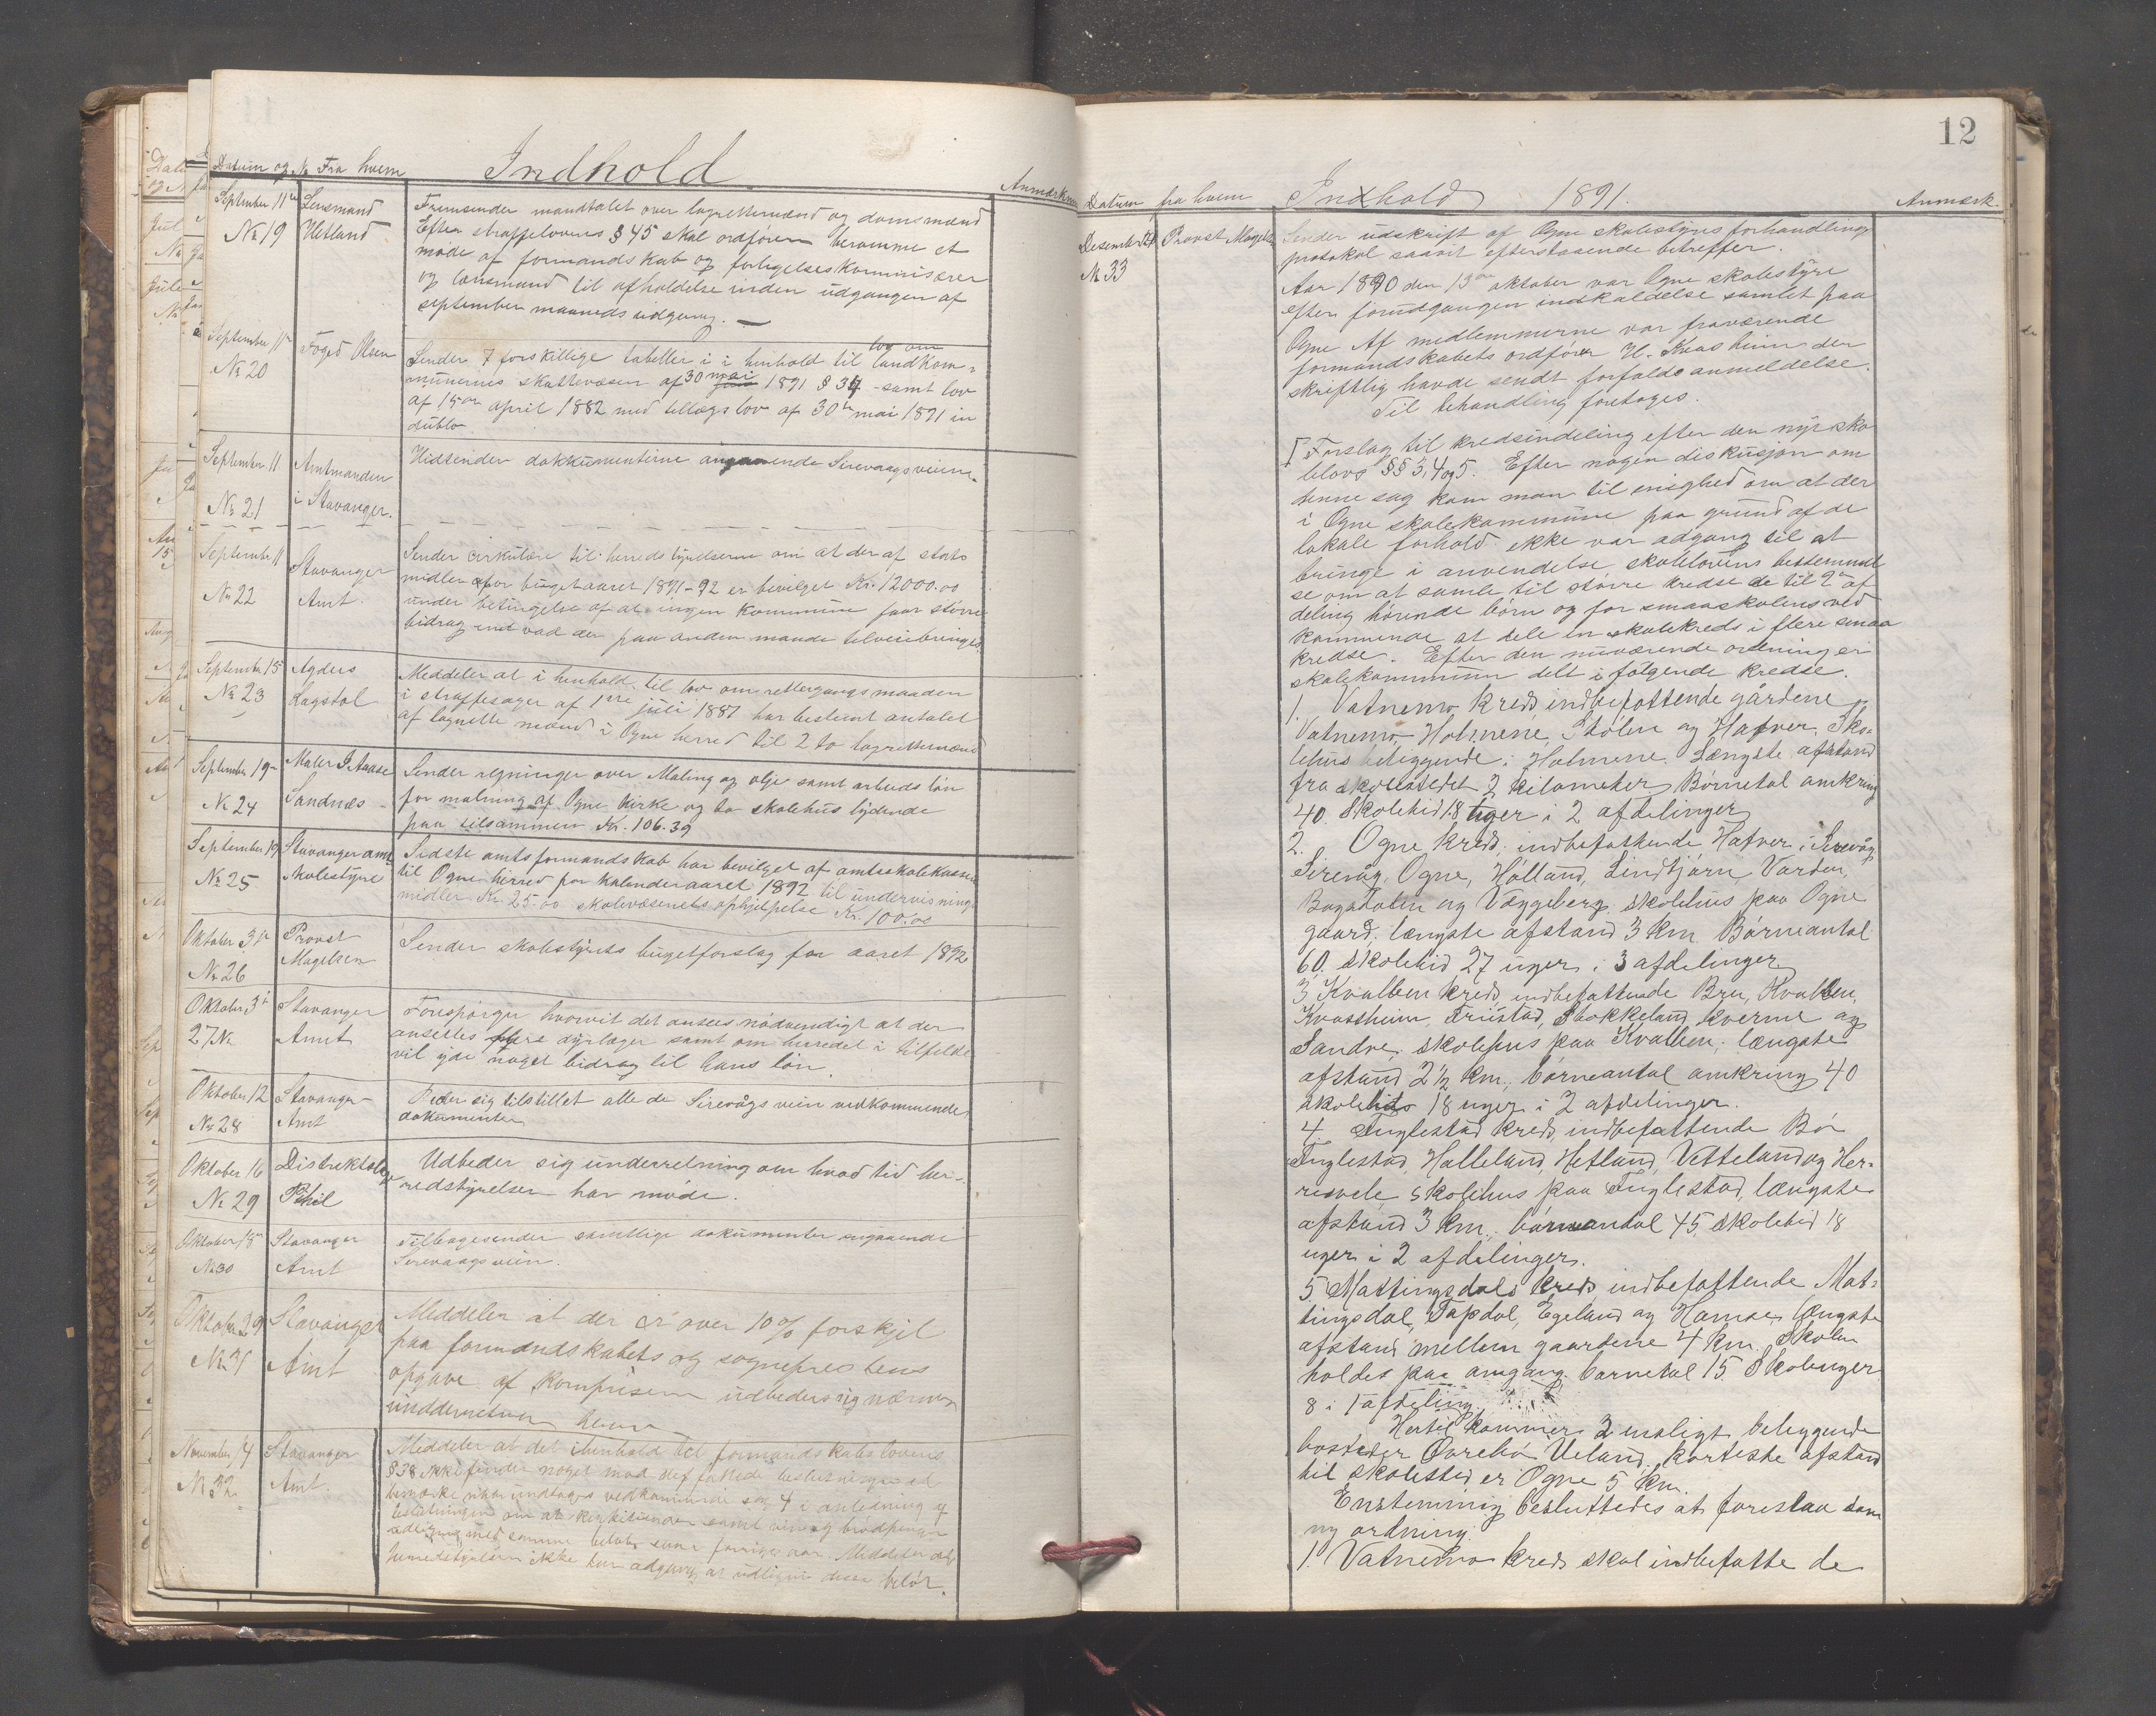 Datum og No Fra hvem Indhold Anmærkn
September 11te Lensmand Fremsender mandtalet over lagrettemænd og domsmænd
No 19 Hetland Efter straffelovens § 45 skal ordføren beramme et
møde af formandskab og forligelseskommisærer
og lensmand til afholdelse inden udgangen af
september maaneds udgang. —
September 11te Foged Olsen Sender 7 forskillige tabeller i i henhold til lov om landkom-
No 20 munernes skattevæsen af 30 mai 1891 § 34 - samt lov
af 15de april 1882 med tillægslov af 30te mai 1891 in
dublo
September 11 Amtmanden Hidsender dokkumenterne angaaende Sirevaagsveiene.
No 21 i Stavanger.
September 11 Stavanger Sender cirkulære til herredstyrelserne om at der af stats
No 22 Amt. midler for bügetaaret 1891-92 er bevilget Kr. 12000.00
under betingelse af at ingen kommune faar større
bidrag end vad der paa anden maade tilveiebringes.
September 15 Agders Meddeler at i henhold til lov om rettergangsmaaden
No 23 Lagstol i straffesager af 1ste juli 1887 har bestemt antallet
af lagrette mænd i Ogne herred til 2 to lagrettemænd
September 19 Maler J. Aaase Sender regninger over Maling og olje samt arbeids løn
No 24 Sandnæs for malning af Ogne kirke og to skolehus lydende
paa tilsammen Kr. 106.39
September 19 Stavanger amt Sidste amtsformandskab har bevilget af amtsskolekassen
No 25 skolestyre til Ogne herred for kalenderaaret 1892 til undervisnings
midler Kr. 25.00 skolevæsenets ophjelpelse Kr. 100.00
Oktober 3de Provst Sender skolestyrets bügetforslag for aaret 1892
No 26 Magelsen
Oktober 3de Stavanger Forespørger hvorvit det ansees nödvendigt at der
27 No Amt ansettes flere dyrlæger samt om herredet i tilfelde
vil yde noget bidrag til hans løn.
Oktober 12 Stavanger Beder sig tilstillet alle de Sirevågs veien vedkommende
No 28 Amt dokumenter
Oktober 16 Distriktslæge Udbeder sig underretning om hvad tid her-
No 29 Pihl redstyrelsen har møde.
Oktober 15 Stavanger Tilbagesender samtlige dokumenter angaaende
No 30 Amt Sirevaagsveien.
Oktober 29 Stavanger Meddeler at der er over 10% forskjel
No 31 Amt paa formandskabets og sogneprestens
opgave af kornprisern udbeder sig nærmere
underretnen herom
November 14 Stavanger Meddeler at det i henhold til formandskabslovens
No 32 Amt. § 38 ikke finder noget mod de fattede beslutninger at
bemærke naar undtages vedkommende sag 4 i anledning af
beslutningen om at
udligning med samme beløb som forrige aar. Meddeler at
herredstyrelsen ikke har adgang at udligne disse beløb.
12
Datum fra hvem Indhold 1891. Anmærk.
Desember 21 Provst Magelsen Sender udskrift af Ogne skolestyres forhandlings
No 33 protokol saavit efterstaaende betreffer.
Aar 1890 den 13de oktober var Ogne skolestyre
efter forudgangen indkaldelse samlet paa
Ogne Af medlemmerne var fraværende
formandskabets ordfører H. Kvasheim der
skriftlig havde sendt forfaldsanmeldelse.
Til behandling foretoges.
I Forslag til kredsindeling efter den nye sko
lelovs §§ 3, 4 og 5. Efter nogen diskusjon om
denne sag kom man til enighed om at der
i Ogne skolekommune paa grund af de
lokale forhold ikke var adgang til at
bringe i anvendelse skolelovens bestemmel
se om at samle til større kredse de til 2den af
deling hørende børn og for smaaskolens ved
kommende at dele en skolekreds i flere smaa
kredse. Efter den nuværende ordening er
skolekommunen delt i følgende kredse.
1. Vatnemo kreds indbefattende gårdene
Vatnemo Holmene Stølen og Hafver, Sko-
lehus beliggende i Holmene. Længste afstand
fra skolestedet 2 kilometer Børnetal omkring
40. Skoletid 18 uger i 2 afdelinger
2. Ogne kreds, indbefattende Hafver i Sirevåg
Sirevåg, Ogne, Hölland, Lindtjørn, Varden,
Bogadalen og Væggeberg. skolehus paa Ogne
gaard. længste afstand 3 km Børneantal
60. skoletid 27 uger i 3 afdelinger
3 Kvalben kreds indbefattende Bru, Kvalben,
Kvassheim, Triistad, Stokkeland, kverne og
Sandve. skolehus paa Kvalben; længste
afstand 2 1/2 km., börneantal omkring 40
skoletid 18 uger i 2 afdelinger.
4. Fuglestad kreds indbefattende Bö
Fuglestad, Halleland, Hetland, Vetteland og Her-
resvele skolehus paa Fuglestad, længste
afstand 3 km. börneantal 45. skoletid 18
uger i 2 afdelinger.
5 Mattingsdals kreds indbefattende Mat-
tingsdal, Tapdal, Egeland og Hamse, længste
afstand mellem gaardene 4 km. Skolen
holdes paa omgang. barnetal 15 Skoleuger
8 i 1 afdeling.
Hertil kommer 2 ensligt beliggende
bosteder Övrebö Ueland, korteste afstand
til skolested er Ogne 5 km.
Enstemmig besluttedes at foreslaa som
ny ordning.
1. Vatnemo kreds skal indbefatte de